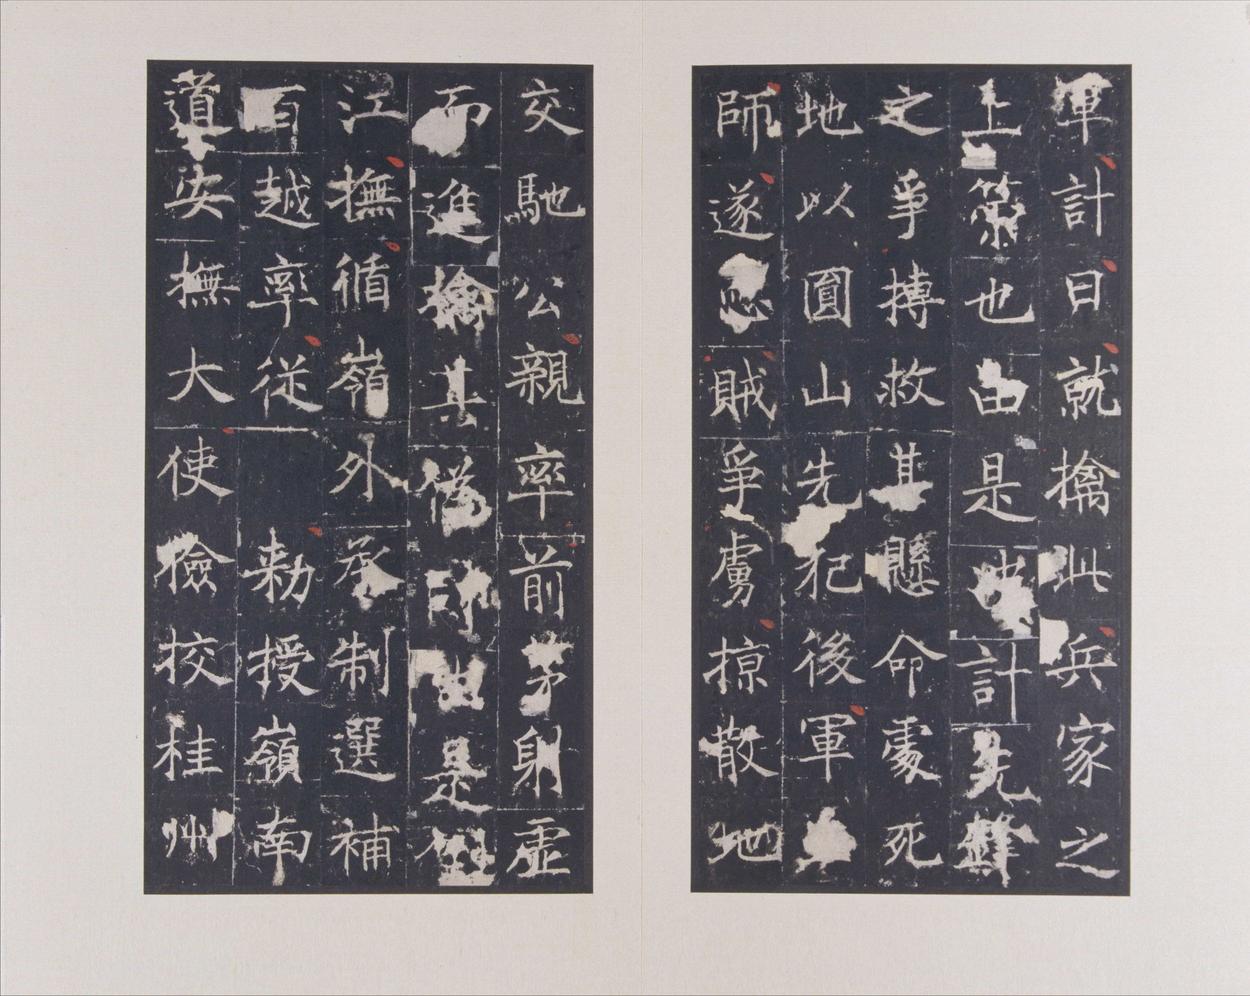 軍計日就擒此兵家之
上策也由是計先鋒
之爭搏救其懸命處死
地以圓山先犯後軍
師遂賊爭虜掠散地
交馳公親率前茅射虛
而進擒其偽帥是
江撫循嶺外承制選補
百越率從 勑授嶺南
道安撫大使檢校桂州